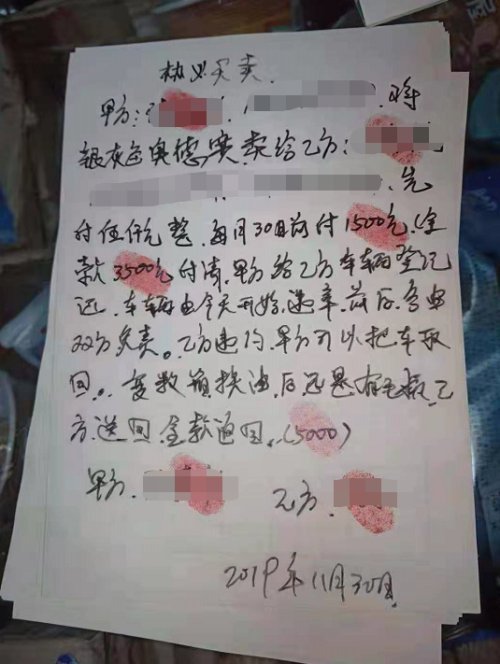 协义买卖.
甲方: 将
银灰色奥德赛卖给乙方:
先
付伍仟元整,每月30日前付1500元,全
款3500元付清,甲方给乙方车辆登记
证,车辆由今天开始,违章,前后,各由
双方负责。乙方违约,甲方可以把车取
回。变数箱换油,后还是有毛病,乙
方送回,全款退回。(5000)
甲方.
乙方.
2019年11月30日.